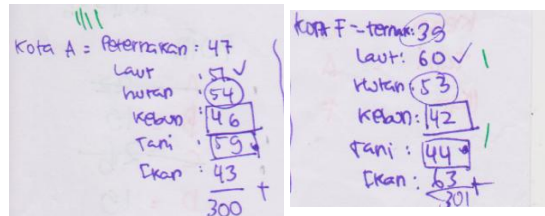 Kota A = Peternakan : 47
Laut : 51 ✓
hutan : 54
Kebun : 46
Tani : 59
Ikan : 43 +
300
Kota F - ternak : 39
Laut : 60 ✓
Hutan : 53
Kebun : 42
Tani : 44
Ikan : 63 +
301